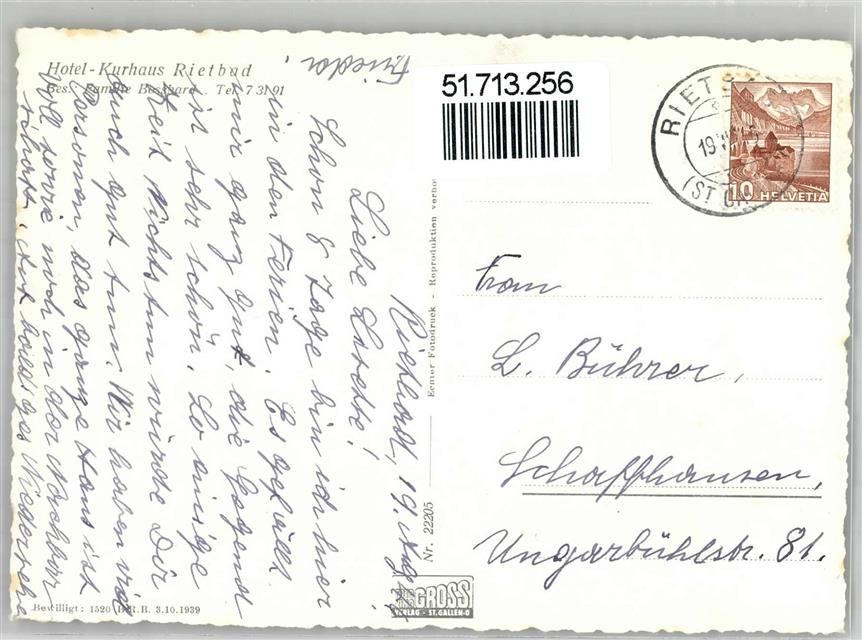 Hotel-Kurhaus Rietbad
Bes. Familie Bosshard . Tel. 7 31 91
Rietbad, 19. Aug.
Liebe Lisette!
Schon 8 Tage bin ich hier
in den Ferien. Es gefällt
mir ganz gut, die Gegend
ist sehr schön. So einige
Zeit Nichts tun würde Dir
auch gut tun. Wir haben viel
Personen, das ganze Haus ist
voll sowie noch in der Nachbar
schaft. Auf baldiges Wiederseh
Frieda.
Bewilligt: 1520 B.R.B. 3.10.1939
Echter Fotodruck - Reproduktion verbo
Nr. 22205
GROSS
VERLAG - ST. GALLEN-O
51.713.256
RIET
19
(ST
10 HELVETIA
Frau
L. Bührer,
Schaffhausen,
Ungarbühlstr. 81.